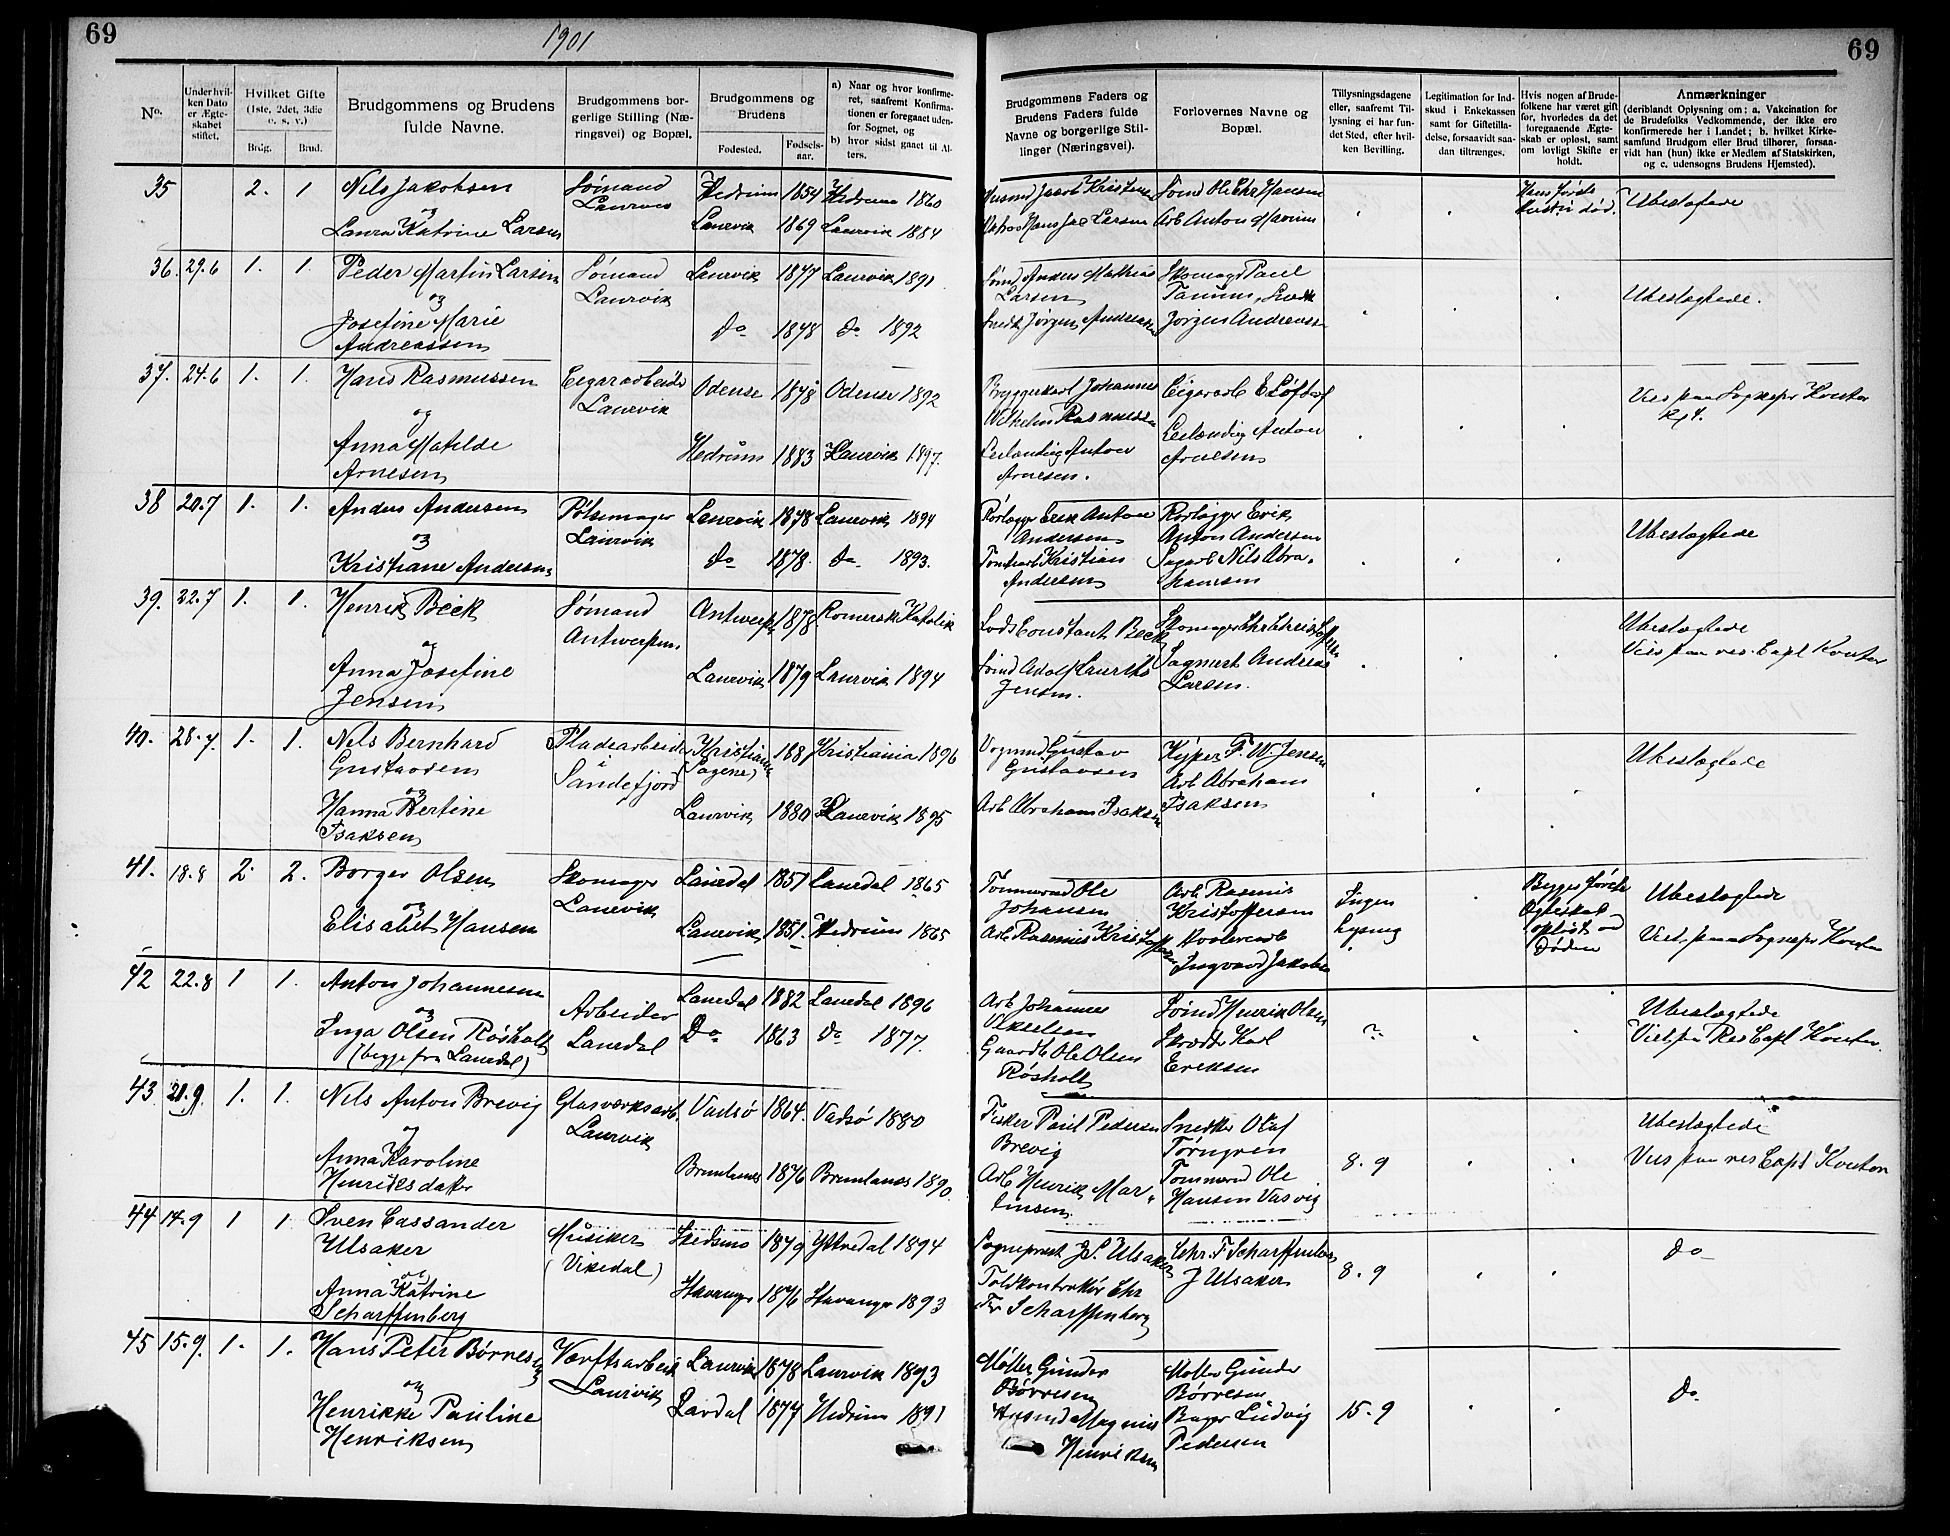 69
1901
69
No.
Under hvilken Dato er Ægteskabet stiftet.
Hvilket Gifte (1ste, 2det, 3die o. s. v.)
Brdg.
Brud.
Brudgommens og Brudens fulde Navne.
Brudgommens borgerlige Stilling (Næringsvei) og Bopæl.
Brudgommens og Brudens
Fødested.
Fødselsaar.
a) Naar og hvor konfirmeret, saafremt Konfirmationen er foregaaet udenfor Sognet, og
b) hvor sidst gaaet til Alters.
Brudgommens Faders og Brudens Faders fulde Navne og borgerlige Stillinger (Næringsvei).
Forlovernes Navne og Bopæl.
Tillysningsdagene eller, saafremt Tillysning ei har fundet Sted, efter hvilken Bevilling.
Legitimation for Indskud i Enkekassen samt for Giftetilladelse, forsaavidt saadan tiltrænges.
Hvis nogen af Brudefolkene har været gift før, hvorledes da det foregaaende Ægteskab er opløst, samt om lovligt Skifte er holdt.
Anmærkninger
(deriblandt Oplysning om: a. Vakcination for de Brudefolks Vedkommende, der ikke ere konfirmerede her i Landet; b. hvilket Kirkesamfund Brudgom eller Brud tilhører, forsaavidt han (hun) ikke er Medlem af Statskirken, og c. udensogns Brudens Hjemsted).
35 2. 1 Nils Jakobsen Sømand Hedrum 1854 Hedrum
og Laurvik
Laura Katrine Larsen Laurvik 1869 Laurvik 1884
Sømd Ole Chr Hansen
Arb Anton
Hans første Hustru død.
Ubeslægtede
36. 29.6 1. 1. Peder Martin Larsen Sømand Laurvik 1877 Laurvik 1891
og Laurvik
Josefine Marie Do 1878 do 1892
Andreassen
Sømd Anders Mathias Larsen
Snedk Jørgen Andreassen
Skomager Paul
Tanum, Snedk
Jørgen Andreassen
Ubeslægtede.
37. 24.6 1. 1. Hans Rasmussen Cigararbeider Odense 1878 Odense 1892
og Laurvik
Anna Matilde Hedrum 1883 Laurvik 1897.
Arnesen
Bryggerkarl Johannes
Wilhelm Rasmussen
Leilending Anton
Arnesen.
Cigararb
Leilending Anton
Arnesen
Vies paa Sognepr Kontor
38 20.7 1. 1. Anders Andersen Pølsemager Laurvik 1878 Laurvik 1894
og Laurvik
Kristiane Andersen do 1878. do 1893.
Rørlægger Erik Anton
Andersen
Kristian
Andersen
Rørlægger Erik
Anton Andersen
Sagarb Nils Abra-
hamsen
Ubeslægtede
39. 22.7 1. 1. Henrik Beck Sømand Antwerpen 1878. Romersk Katolik
og Antwerpen.
Anna Josefine Laurvik 1879 Laurvik 1894
Jensen
Lods Constant Beck
Sømd Adolf Lauritz
Jensen.
Skomager Chr Christoffersen
Sagmest Andreas
Larsen.
Ubeslægtede
Vies paa res. Capl Kontor
40. 28.7. 1. 1. Nils Bernhard Pladearbeider Kristiania 188 Kristiania 1896
Gustavsen i (Sagene)
og Sandefjord
Hanna Bertine Laurvik 1880 Laurvik 1895
Isaksen
Vognmd Gustav
Gustavsen
Arb Abraham Isaksen
Kyper F. W. Jensen
Arb Abraham
Isaksen
Ubeslægtede
41. 18.8 2. 2. Borger Olsen Skomager Laurdal 1851 Laurdal 1865
og Laurvik
Elisabet Hansen Laurvik 1851. Hedrum 1865
Tømmermd Ole
Johansen
Arb Rasmus Kristoffersen
Arb Rasmus
Kristoffersen
Ingvard Jakobsen
Ingen
Lysning
Begges første
Ægteskab
opløst ved
Døden
Ubeslægtede
Viet paa Sognepr Kontor
42 22.8 1 1. Anton Johannesen Arbeider Laurdal 1882 Laurdal 1896
og Laurdal
Inga Olsen Røsholt Do 1863 do 1877.
(begge fra Laurdal)
Arb Johannes
Gaardb Ole Olsen
Røsholt
Sømd Henrik Olsen
Skrædder Karl
Eriksen
?
Ubeslægtede
Viet paa Res Capl Kontor.
43 21.9. 1. 1. Nils Anton Brevig Glasværksarb. Vadsø 1864. Vadsø 1880
og Laurvik
Anna Karoline Brunlanes 1876 Brunlanes 1890.
Henriksdatter
Fisker Paul Pedersen
Brevig
Arb Henrik Mar-
tinsen.
Snedker Olaf
Törngren
Tømmermd Ole
Hansen Vasvig
8.9
Ubeslægtede
Vies paa res Capl Kontor
44 14.9 1 1. Sven Cassander Musiker Skedsmo 1879 Yttredal 1894
Ulsaker (Vikedal)
og
Anna Katrine Stavanger 1876 Stavanger 1893
Scharffenberg
Sogneprest J. S. Ulsaker
Toldkontrolør Chr
Fr Scharffenberg
Chr. F Scharffenberg
J Ulsaker
8.9
do
45 15.9. 1. 1. Hans Peter Børresen Værftsarbeider Laurvik 1878 Laurvik 1893
og Laurvik
Henrikke Pauline Lardal 1877 Hedrum 1891
Henriksen
Møller Gunder
Børresen
Magnus
Henriksen
Møller Gunder
Børresen
Bager Ludvig
Pedersen
15.9
do